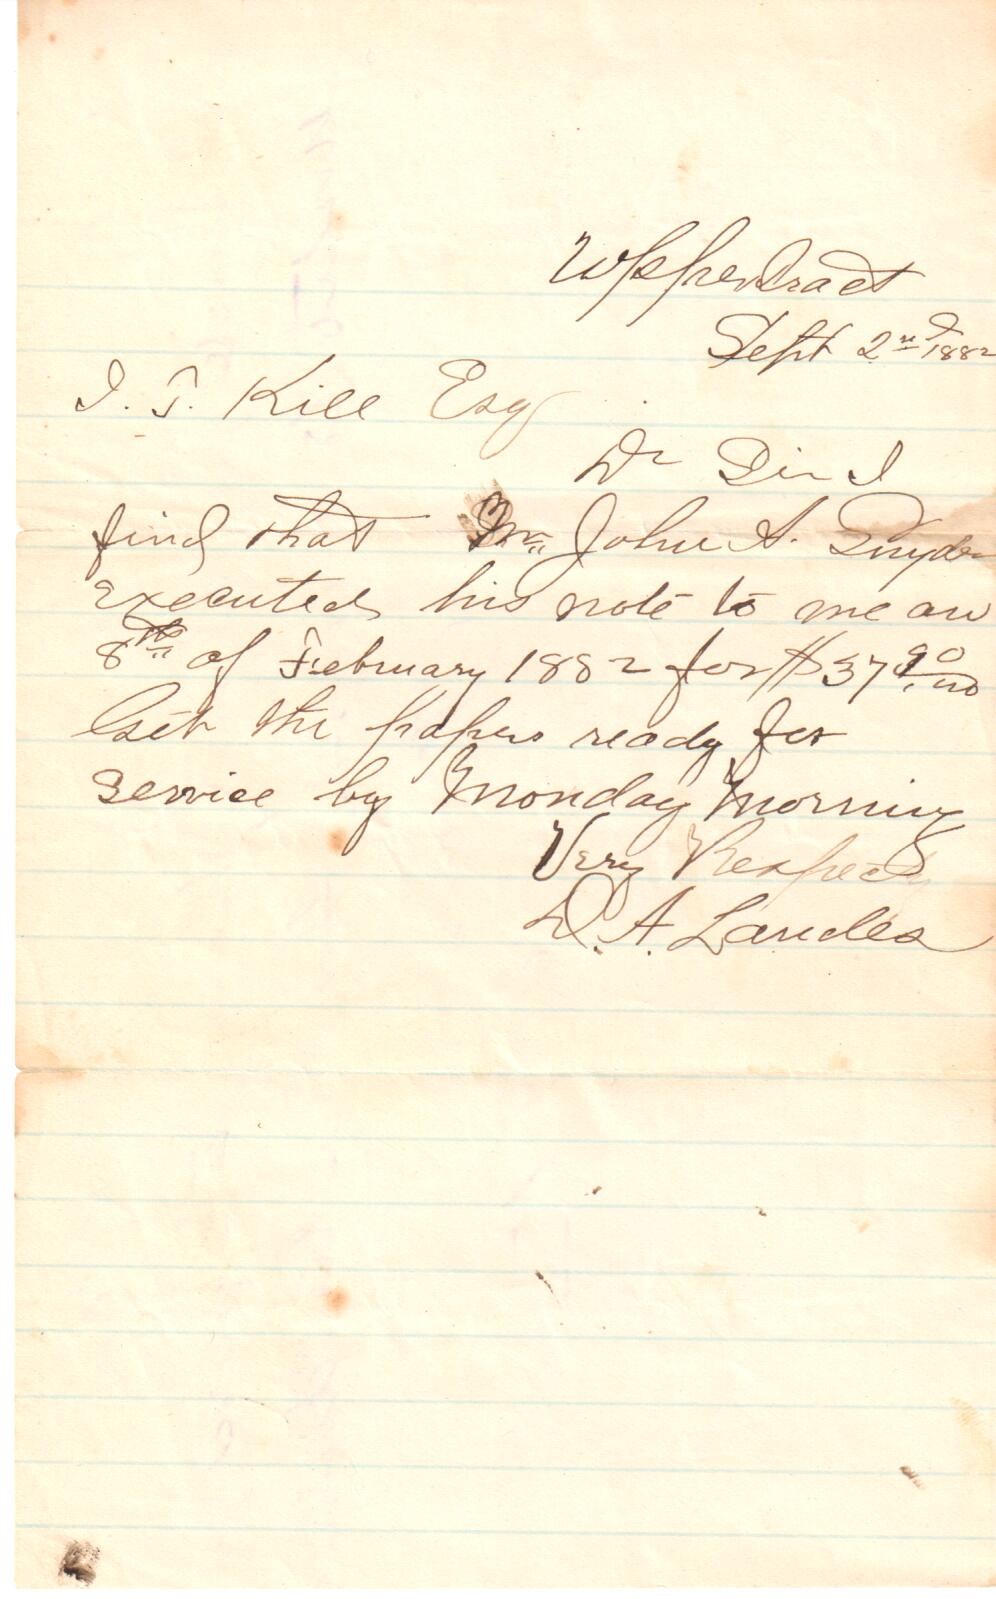 Upper Tract
Sept 2nd 1882
I. T. Kile Esq
Dr Sir I
find that Mr. John A. Snyder
executed his note to me on
8th of February 1882 for $37 90/100
Get the papers ready for
service by Monday Morning
Very Respect
D. A. Landes